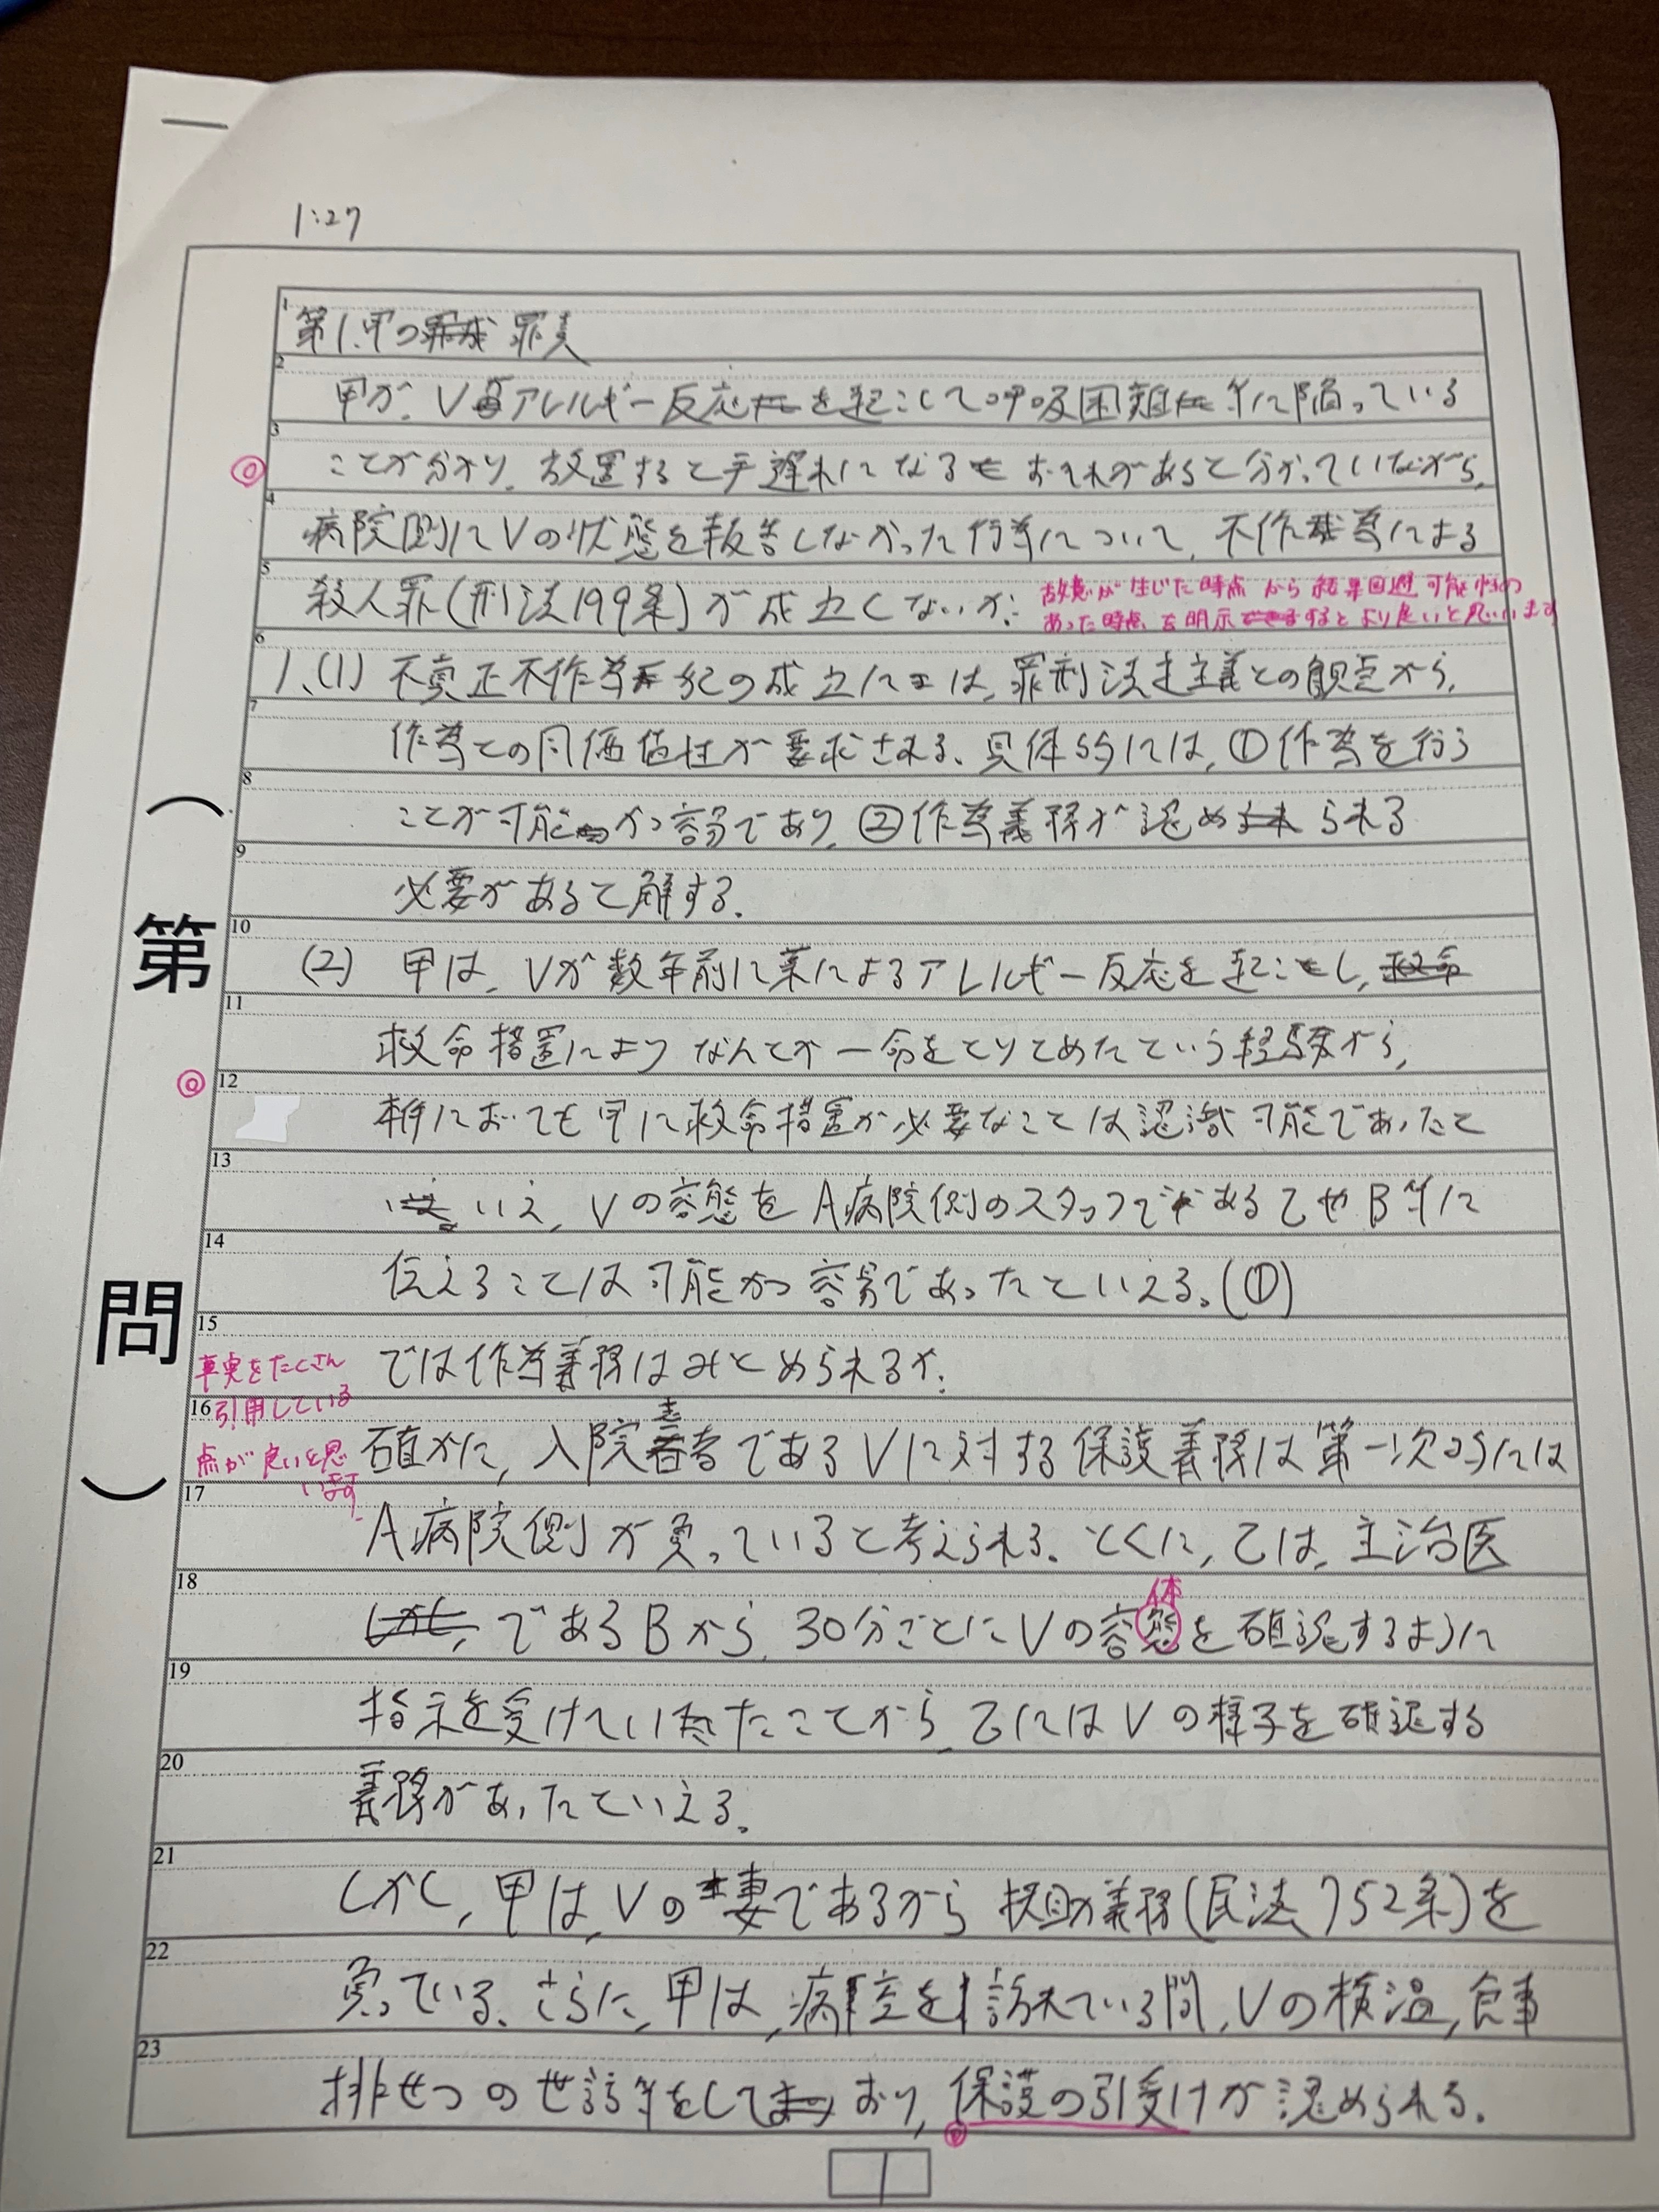 1:27
1
第1.甲の罪責
2
甲が、Vがアレルギー反応を起こして呼吸困難等に陥っている
3
ことが分かり、放置すると手遅れになるおそれがあると分かっていながら、
4
病院側にVの状態を報告しなかった行為について、不作為による
5
殺人罪(刑法199条)が成立しないか。
故意が生じた時点から結果回避可能性の
あった時点を明示するとより良いと思います
6
1.(1) 不真正不作為犯の成立には、罪刑法定主義との観点から、
7
作為との同価値性が要求される。具体的には、①作為を行う
8
ことが可能かつ容易であり、②作為義務が認められる
9
必要があると解する。
10
(2) 甲は、Vが数年前に薬によるアレルギー反応を起こし、
11
救命措置によりなんとか一命をとりとめたという経験から、
12
本件においても甲に救命措置が必要なことは認識可能であったと
13
いえ、Vの容態をA病院側のスタッフである乙やB等に
14
伝えることは可能かつ容易であったといえる。(①)
15
では作為義務はみとめられるか。
事実をたくさん
引用している
点が良いと思
います。
16
確かに、入院患者であるVに対する保護義務は第一次的には
17
A病院側が負っていると考えられる。とくに、乙は、主治医
18
であるBから、30分ごとにVの容態を確認するように
体
19
指示を受けていたことから、乙にはVの様子を確認する
20
義務があったといえる。
21
しかし、甲は、Vの妻であるから扶助義務(民法752条)を
22
負っている。さらに、甲は、病室を訪れている間、Vの検温、食事
23
排せつの世話等をしており、保護の引受けが認められる。
(第 問)
1